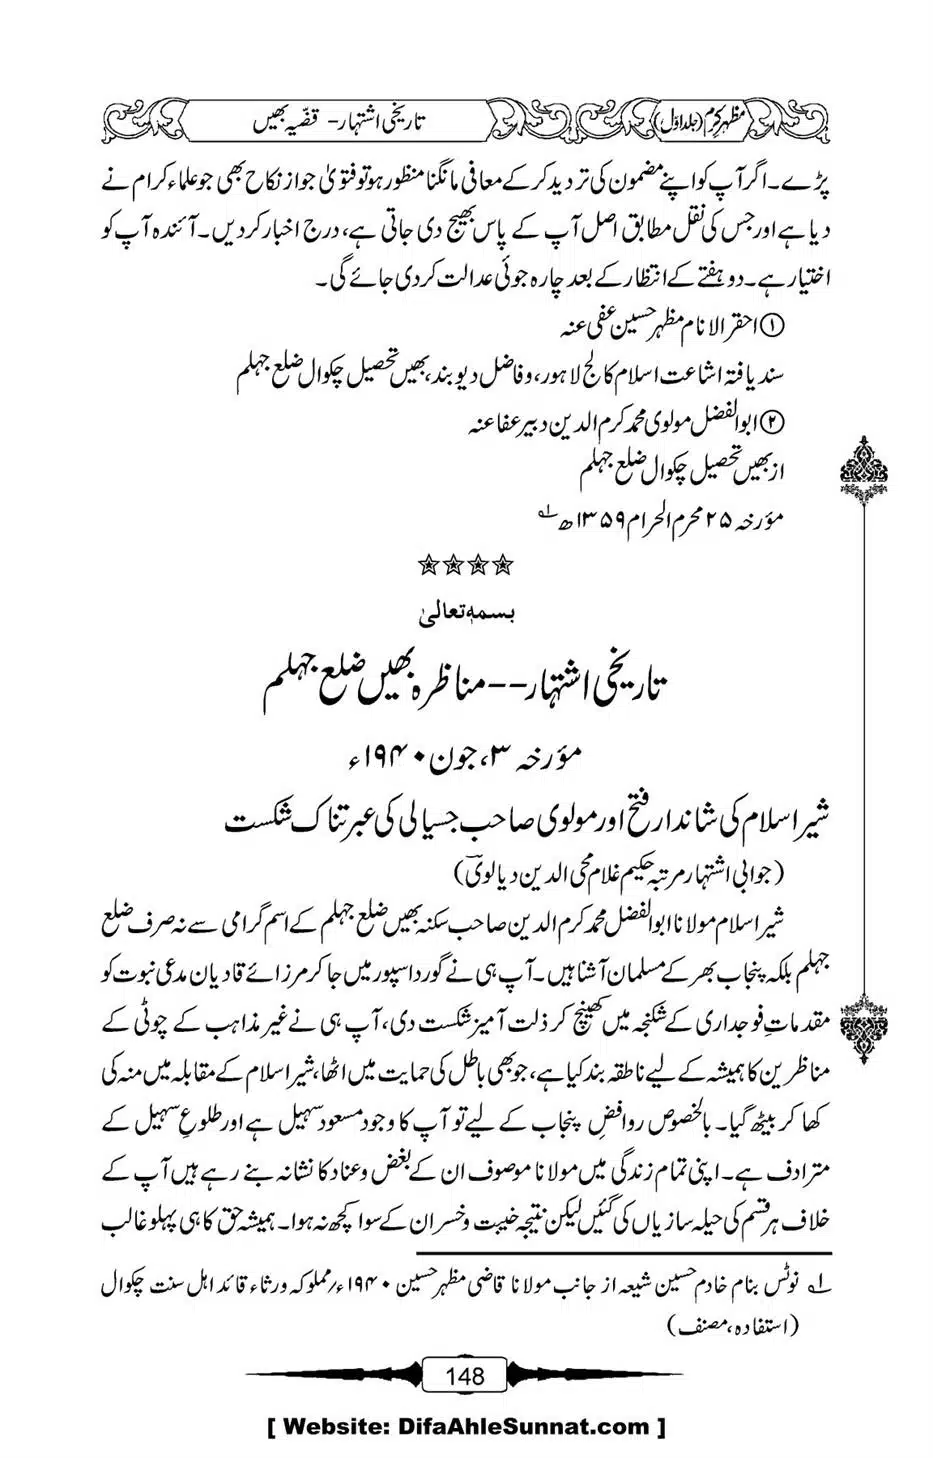 مظہرِ کرم (جلد اوّل)
تاریخی اشتہار - قضّیہ بھیں
پڑے۔ اگر آپ کو اپنے مضمون کی تردید کر کے معافی مانگنا منظور ہو تو فتویٰ جواز نکاح بھی جو علماء کرام نے
دیا ہے اور جس کی نقل مطابق اصل آپ کے پاس بھیج دی جاتی ہے، درج اخبار کردیں۔ آئندہ آپ کو
اختیار ہے۔ دو ہفتے کے انتظار کے بعد چارہ جوئی عدالت کردی جائے گی۔
① احقر الانام مظہر حسین عفی عنہ
سند یافتہ اشاعت اسلام کالج لاہور، و فاضل دیوبند، بھیں تحصیل چکوال ضلع جہلم
② ابوالفضل مولوی محمد کرم الدین دبیر عفا عنہ
از بھیں تحصیل چکوال ضلع جہلم
مؤرخہ ۲۵ محرم الحرام ۱۳۵۹ھ ؂۱
بسمہٖ تعالیٰ
تاریخی اشتہار -- مناظرہ بھیں ضلع جہلم
مؤرخہ ۳، جون ۱۹۴۰ء
شیر اسلام کی شاندار فتح اور مولوی صاحب جسیالی کی عبرتناک شکست
(جوابی اشتہار مرتبہ حکیم غلام محی الدین دیالویؒ)
شیر اسلام مولانا ابوالفضل محمد کرم الدین صاحب سکنہ بھیں ضلع جہلم کے اسم گرامی سے نہ صرف ضلع
جہلم بلکہ پنجاب بھر کے مسلمان آشنا ہیں۔ آپ ہی نے گورداسپور میں جا کر مرزائے قادیان مدعی نبوت کو
مقدماتِ فوجداری کے شکنجہ میں کھینچ کر ذلت آمیز شکست دی، آپ ہی نے غیر مذاہب کے چوٹی کے
مناظرین کا ہمیشہ کے لیے ناطقہ بند کیا ہے، جو بھی باطل کی حمایت میں اٹھا، شیر اسلام کے مقابلہ میں منہ کی
کھا کر بیٹھ گیا۔ بالخصوص روافضِ پنجاب کے لیے تو آپ کا وجود مسعود سہیل ہے اور طلوعِ سہیل کے
مترادف ہے۔ اپنی تمام زندگی میں مولانا موصوف ان کے بغض و عناد کا نشانہ بنے رہے ہیں آپ کے
خلاف ہر قسم کی حیلہ سازیاں کی گئیں لیکن نتیجہ خیبت و خسران کے سوا کچھ نہ ہوا۔ ہمیشہ حق کا ہی پہلو غالب
؂۱ نوٹس بنام خادم حسین شیعہ از جانب مولانا قاضی مظہر حسین ۱۹۴۰ء/مملوکہ ورثاء قائد اہل سنت چکوال
(استفادہ، مصنف)
148
[ Website: DifaAhleSunnat.com ]